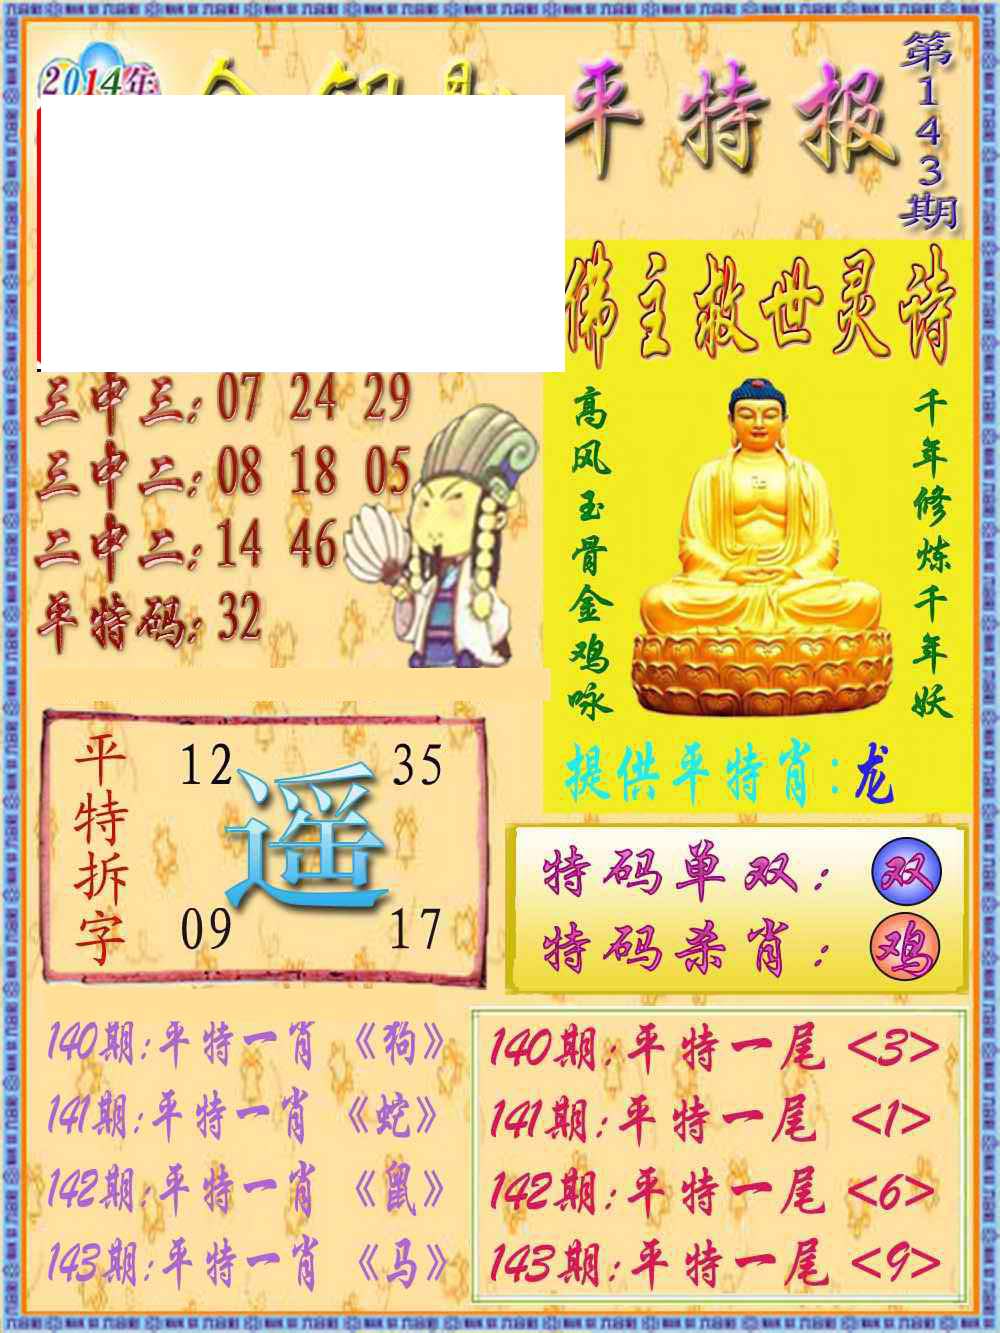 2014年
平特报
第143期
佛主救世灵诗
高风玉骨金鸡咏
千年修炼千年妖
提供平特肖:龙
三中三:07 24 29
三中二:08 18 05
二中二:14 46
平特码:32
平特拆字
12 35
遥
09 17
特码单双:双
特码杀肖:鸡
140期:平特一肖《狗》
141期:平特一肖《蛇》
142期:平特一肖《鼠》
143期:平特一肖《马》
140期:平特一尾<3>
141期:平特一尾<1>
142期:平特一尾<6>
143期:平特一尾<9>